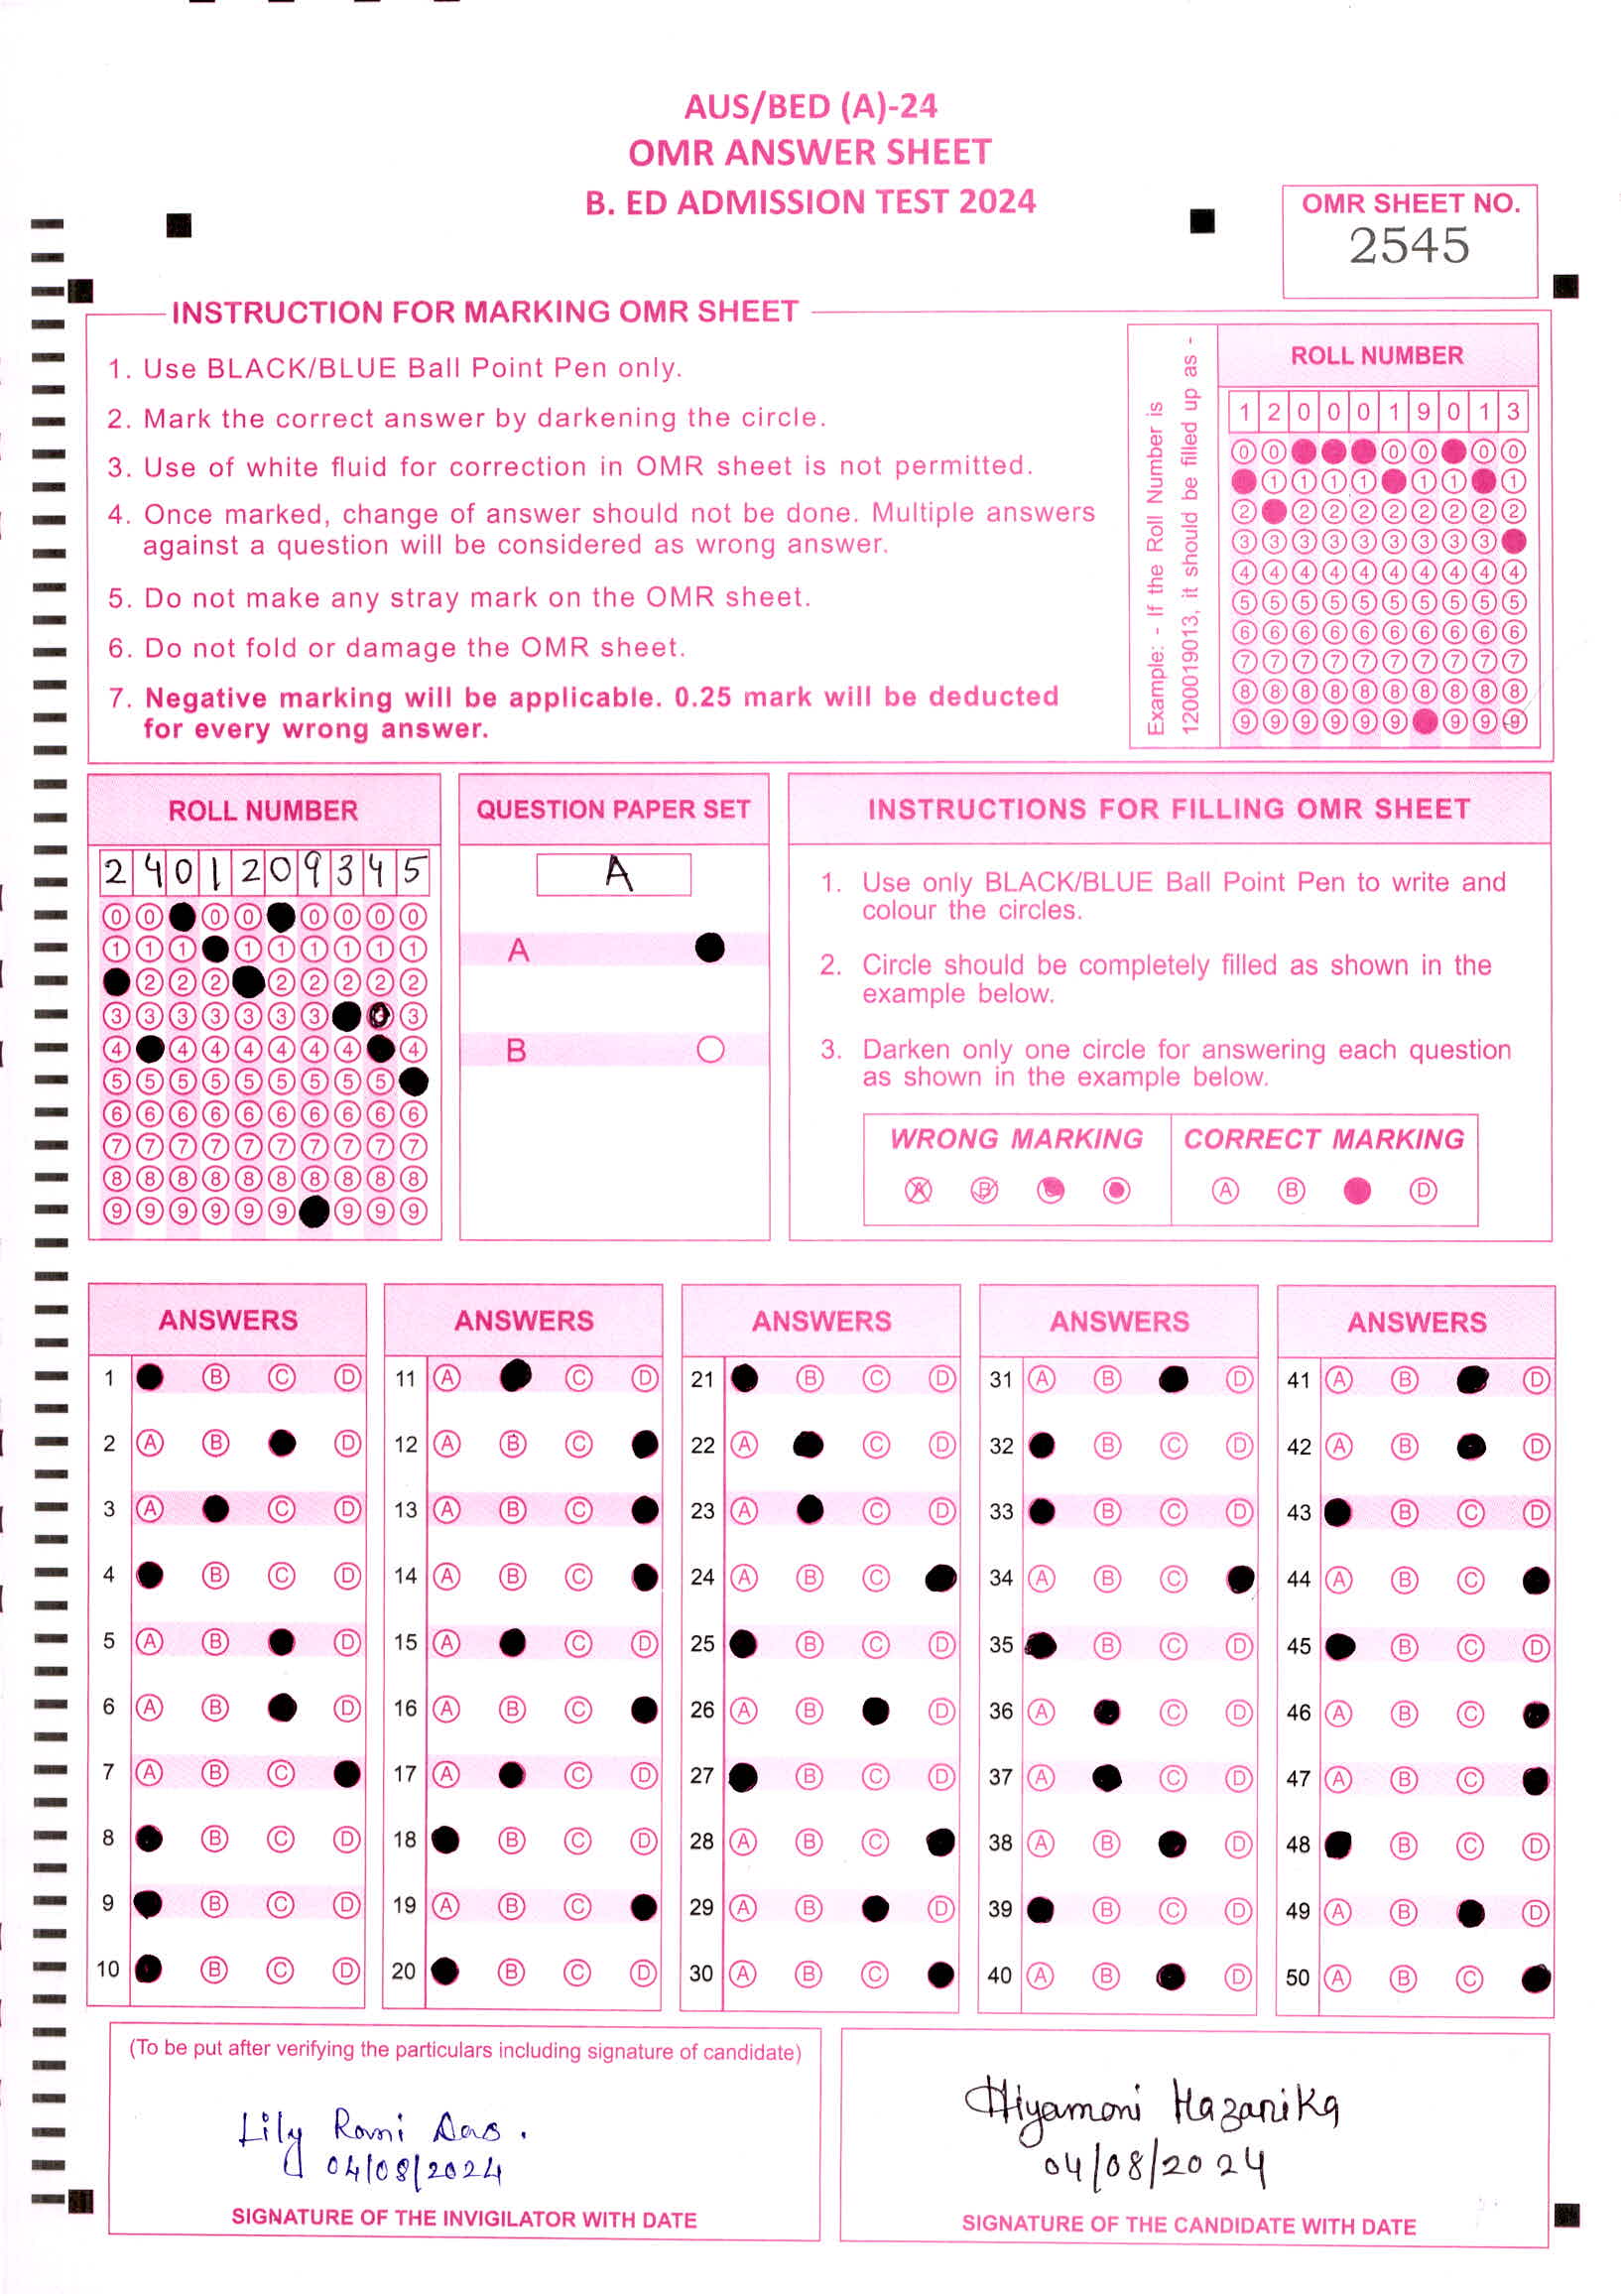 AUS/BED (A)-24
OMR ANSWER SHEET
B. ED ADMISSION TEST 2024
OMR SHEET NO.
2545
INSTRUCTION FOR MARKING OMR SHEET
1. Use BLACK/BLUE Ball Point Pen only.
2. Mark the correct answer by darkening the circle.
3. Use of white fluid for correction in OMR sheet is not permitted.
4. Once marked, change of answer should not be done. Multiple answers
against a question will be considered as wrong answer.
5. Do not make any stray mark on the OMR sheet.
6. Do not fold or damage the OMR sheet.
7. Negative marking will be applicable. 0.25 mark will be deducted
for every wrong answer.
Example: - If the Roll Number is
1200019013, it should be filled up as -
ROLL NUMBER
1 2 0 0 0 1 9 0 1 3
0 0 0 0 0 0
1 1 1 1 1 1 1
2 2 2 2 2 2 2 2 2
3 3 3 3 3 3 3 3 3
4 4 4 4 4 4 4 4 4 4
5 5 5 5 5 5 5 5 5 5
6 6 6 6 6 6 6 6 6 6
7 7 7 7 7 7 7 7 7 7
8 8 8 8 8 8 8 8 8 8
9 9 9 9 9 9 9 9 9
ROLL NUMBER
2 4 0 1 2 0 9 3 4 5
0 0 0 0 0 0 0 0
1 1 1 1 1 1 1 1 1
2 2 2 2 2 2 2 2
3 3 3 3 3 3 3 3
4 4 4 4 4 4 4 4
5 5 5 5 5 5 5 5 5
6 6 6 6 6 6 6 6 6 6
7 7 7 7 7 7 7 7 7 7
8 8 8 8 8 8 8 8 8 8
9 9 9 9 9 9 9 9 9
QUESTION PAPER SET
A
A
B
INSTRUCTIONS FOR FILLING OMR SHEET
1. Use only BLACK/BLUE Ball Point Pen to write and
colour the circles.
2. Circle should be completely filled as shown in the
example below.
3. Darken only one circle for answering each question
as shown in the example below.
WRONG MARKING CORRECT MARKING
A B A B D
ANSWERS
1 B C D
2 A B D
3 A C D
4 B C D
5 A B D
6 A B D
7 A B C
8 B C D
9 B C D
10 B C D
ANSWERS
11 A C D
12 A B C
13 A B C
14 A B C
15 A C D
16 A B C
17 A C D
18 B C D
19 A B C
20 B C D
ANSWERS
21 B C D
22 A C D
23 A C D
24 A B C
25 B C D
26 A B D
27 B C D
28 A B C
29 A B D
30 A B C
ANSWERS
31 A B D
32 B C D
33 B C D
34 A B C
35 B C D
36 A C D
37 A C D
38 A B D
39 B C D
40 A B D
ANSWERS
41 A B D
42 A B D
43 B C D
44 A B C
45 B C D
46 A B C
47 A B C
48 B C D
49 A B D
50 A B C
(To be put after verifying the particulars including signature of candidate)
Lily Rani Das.
04/08/2024
SIGNATURE OF THE INVIGILATOR WITH DATE
Hiyamoni Hazarika
04/08/2024
SIGNATURE OF THE CANDIDATE WITH DATE